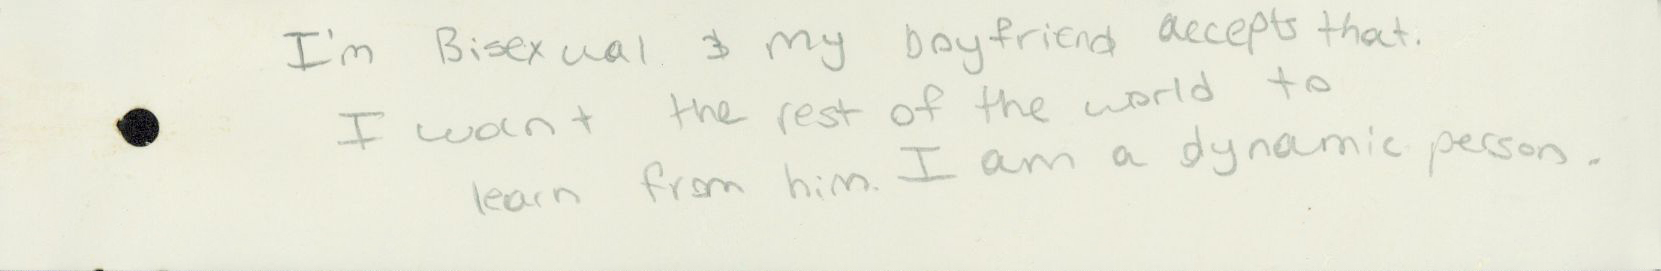 I'm Bisexual & my boyfriend accepts that.
I want the rest of the world to
learn from him. I am a dynamic person.